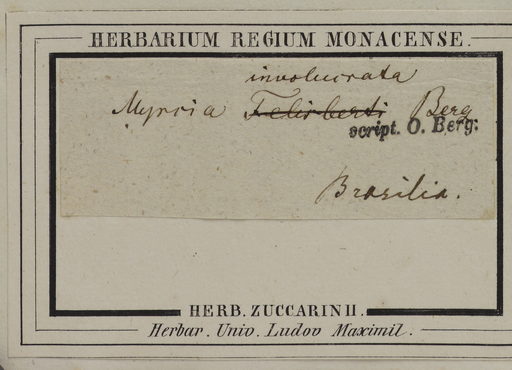 HERBARIUM REGIUM MONACENSE.
involucrata
Myrcia Felisberti Berg
script. O. Berg:
Brasilia.
HERB. ZUCCARINII.
Herbar. Univ. Ludov Maximil.